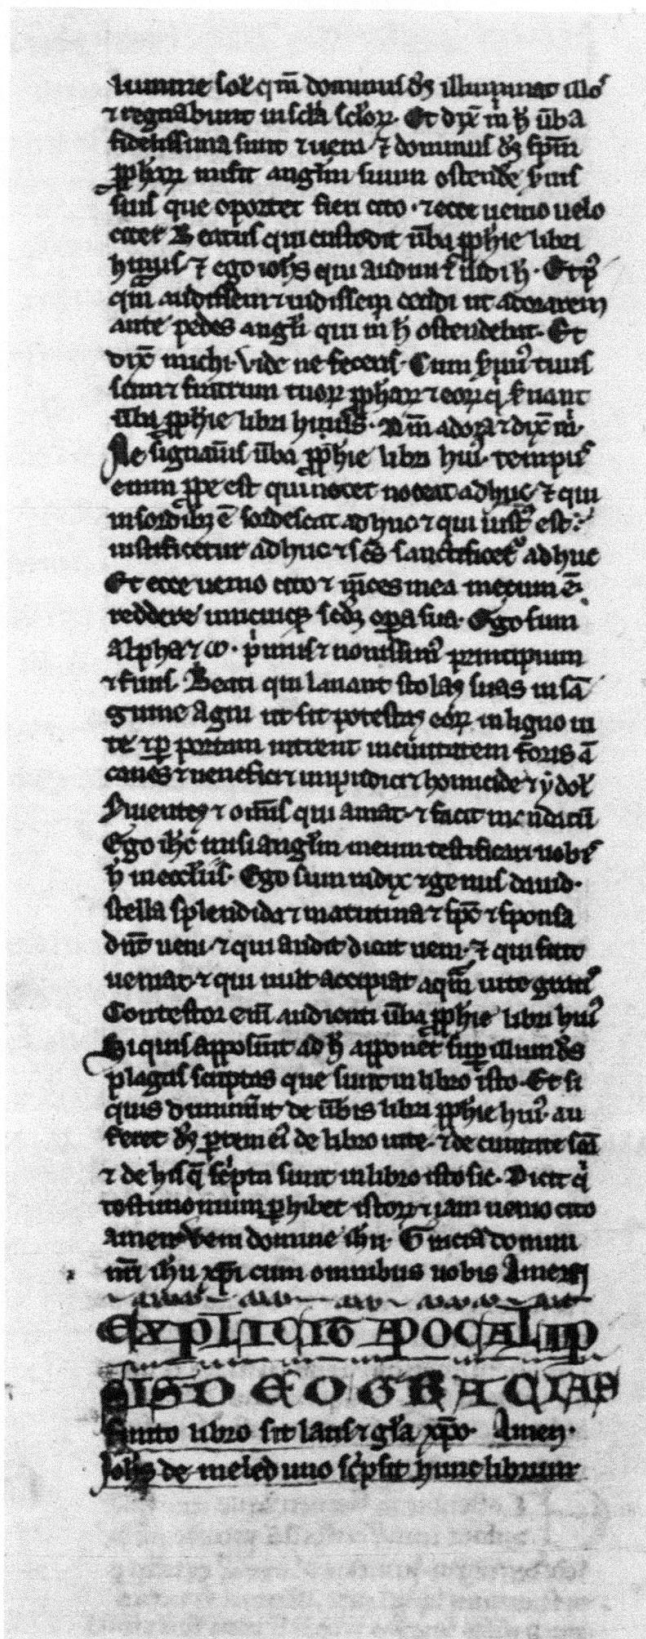 lumine sol̄ qm̄ dominus ds̄ illuminat illos
⁊ regnabunt in scl̄a scl̄oꝝ. Et dix̄ m̄ h̄ ūba
fidelissima sunt ⁊ uera ⁊ dominus ds̄ spm̄
ꝓphaꝝ misit angl̄m suum ostende s̄uis
suis que oportet fieri cito. ⁊ ecce uenio uelo
citer Beatus qui custodit ūba ꝓphie libri
huius. ⁊ ego iohs̄ qui audiui ⁊ uidi h̄. Et p̄
qm̄ audissem ⁊ uidissem cecidi ut adorarem
ante pedes angl̄i qui m̄ h̄ ostendebat. Et
dix̄ michi. Vide ne feceris. Cum s̄uus tuus
sum ⁊ fratrum tuoꝝ ꝓphaꝝ ⁊ eoꝝ q̄ s̄uant
ūba ꝓphie libri huius. Dm̄ adora ⁊ dix̄ m̄.
Ne signaueris ūba ꝓphie libri huiꝰ. tempus
enim ꝓpe est qui nocet noceat adhuc. ⁊ qui
in sordibꝫ ē sordescat adhuc ⁊ qui iustꝰ est
iustificetur adhuc ⁊ scs̄ sanctificetᷣ adhuc
Et ecce uenio cito ⁊ m̄ces mea mecum ē.
reddere unicuiqꝫ scdꝫ opera sua. Ego sum
alpha ⁊ ω. p̄mus ⁊ nouissimꝰ principium
⁊ finis. Beati qui lauant stolas suas in sā
guine agni ut sit potestas eoꝝ in ligno ui
te ⁊ ꝑ portam intrent in ciuitatem foris ā
canes ⁊ uenefici ⁊ impudici ⁊ homicide ⁊ ydol̄
seruientes ⁊ omīs qui amat ⁊ facit mendaciū
Ego ihc̄ misi angl̄m meum testificari uobis
h̄ in eccl̄iis. Ego sum radix ⁊ genus dauid.
stella splendida ⁊ matutina ⁊ spc̄ ⁊ sponsa
dn̄t ueni ⁊ qui audit dicat ueni. ⁊ qui sitit
ueniat ⁊ qui uult accipiat aqm̄ uite gratis
Contestor em̄ audienti ūba ꝓphie libri huiꝰ
Si quis apposūit ad h̄ apponet suꝑ illum ds̄
plagas scriptas que sunt in libro isto. Et si
quis diminūit de ūbis libri ꝓphie huiꝰ. au
feret ds̄ ꝑtem eiꝰ de libro uite. ⁊ de ciuitate scā
⁊ de his q̄ sc̄pta sunt in libro isto sic. Dicit q̄
testimonium ꝑhibet istoꝝ ⁊ iam uenio cito
amen ueni domine ihu. Gracia domini
nr̄i ihu xp̄i cum omnibus uobis Amen
EXPLICIT APOCALIP
SIS DEO GRACIAS
finito libro sit laus ⁊ gl̄a xp̄o. Amen.
Johs̄ de meleduno sc̄psit hunc librum